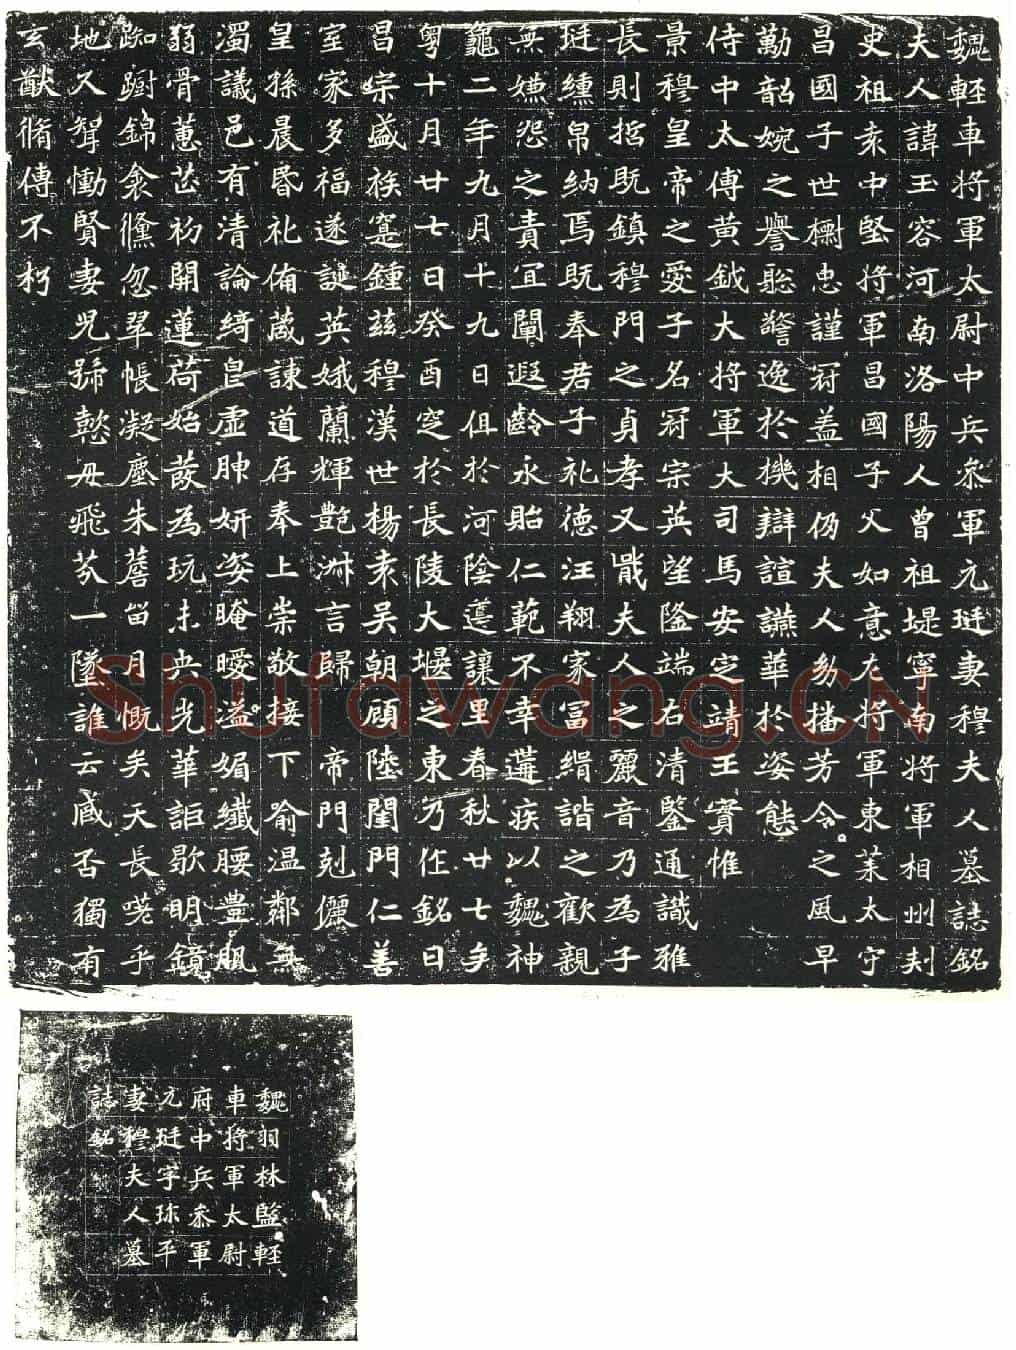 魏輕車將軍太尉中兵叅軍元珽妻穆夫人墓誌銘
夫人諱玉容河南洛陽人曾祖堤寧南將軍相州刾
史祖袁中堅將軍昌國子父如意左將軍東萊太守
昌國子世櫛忠謹冠盖相仍夫人幼播芳令之風早
勤韶婉之譽聡警逸於機辯諠讌華於姿態
侍中太傅黄鉞大將軍大司馬安定靖王實惟
景穆皇帝之愛子名冠宗英望隆端右清鑒通識雅
長則哲既鎮穆門之貞孝又戢夫人之麗音乃為子
珽纁帛納焉既奉君子礼德汪翔家富緝諧之歡親
無嫌怨之責宜闡遐齡永貽仁範不幸遘疾以魏神
龜二年九月十九日俎於河陰遵讓里春秋廿七乡
粤十月廿七日癸酉窆於長陵大堰之東乃作銘曰
昌宗盛族寔鍾兹穆漢世楊袁吴朝顧陸閨門仁善
室家多福遂誕英娥蘭輝艷淋言歸帝門剋儷
皇孫晨昏礼侑葴諫道存奉上崇敬接下俞温鄰無
濁議邑有清論綺皃虚腗妍姿晻曖溢媚纖腰豊肌
弱骨蕙茝初開蓮荷始蔎為玩未央光華詎歇明鏡
踟蹰錦衾儻忽翠帳凝塵朱簷留月慨矣天長嗟乎
地久聟慟賢妻児號慜毋飛芬一墜誰云臧否獨有
玄猷脩傳不朽
魏羽林監輕
車將軍太尉
府中兵叅軍
元珽字珎平
妻穆夫人墓
誌銘
Shufawang.CN